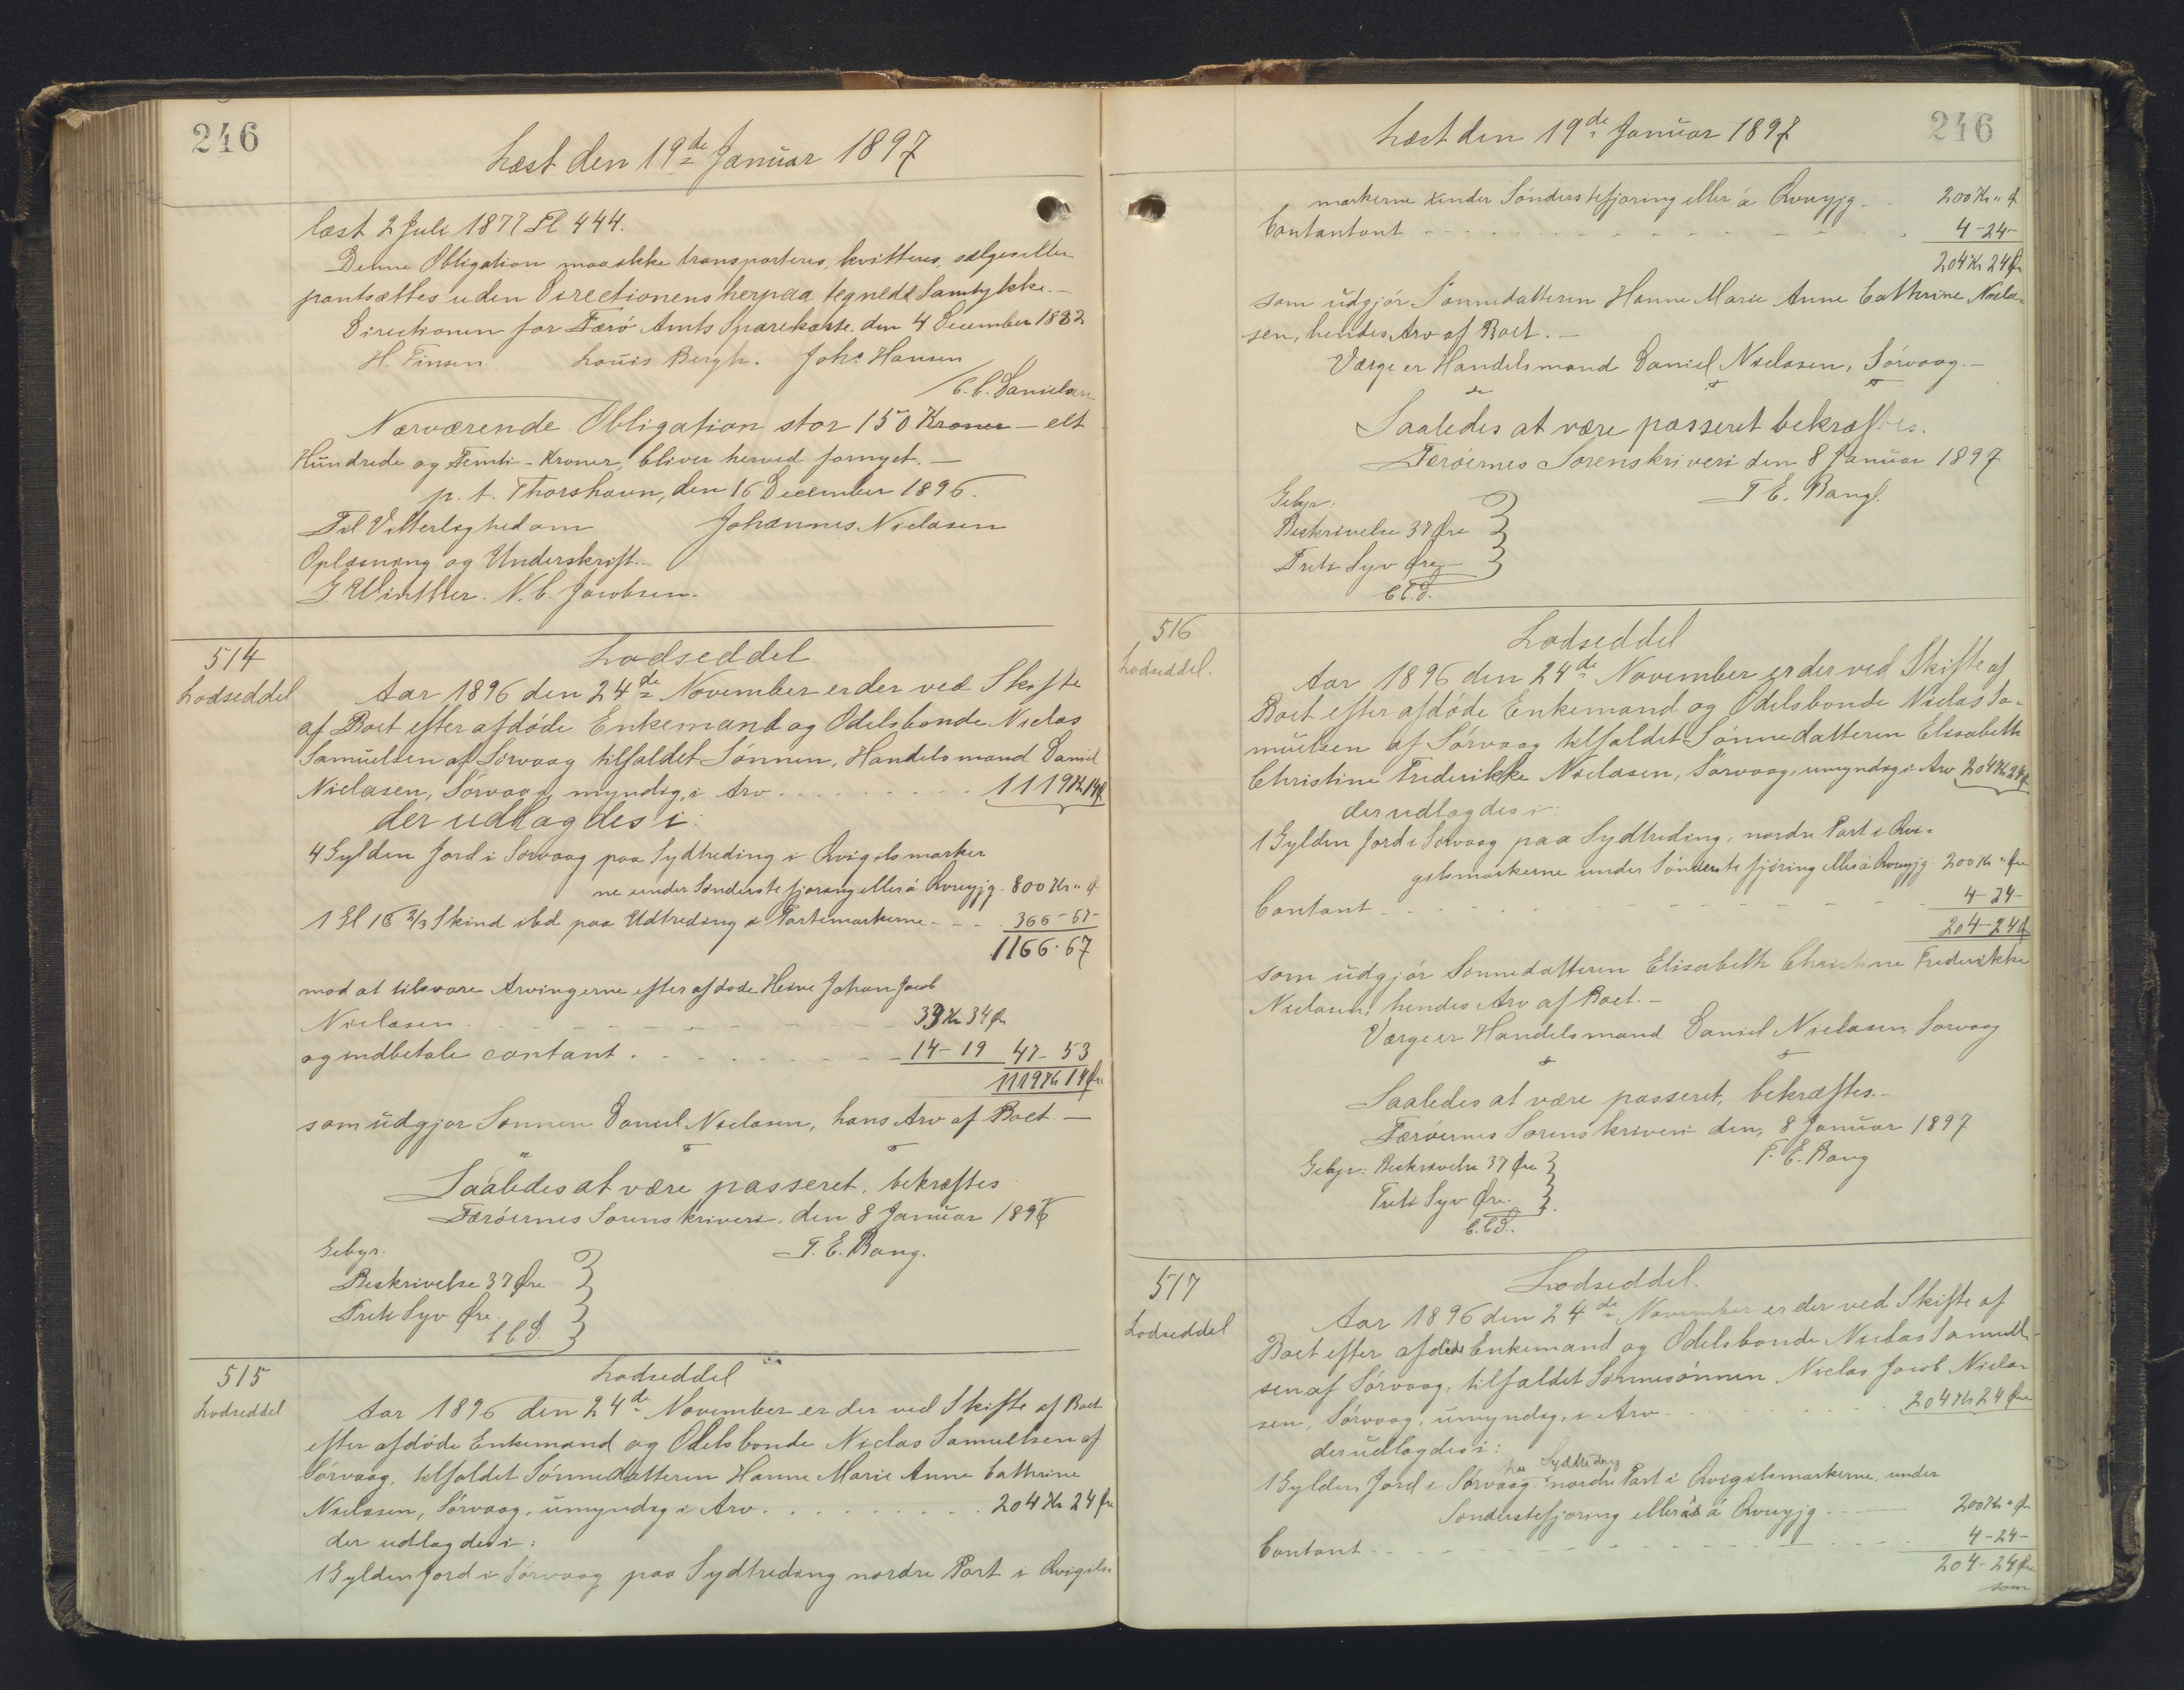 246
Læst den 19de Januar 1897
læst 2 Juli 1877 Fl 444.
Denne Obligation maa ikke transporteres, kvitteres, sælges eller
pantsættes uden Directionens herpaa tegnede Samtykke.-
Directionen for Færø Amts Sparekasse den 4 December 1882
H. Finsen Louis Bergh. Johs Hansen
/C. C. Danielsen
Nærværende Obligation stor 150 Kroner - elt
Hundrede og Femti - Kroner, bliver herved fornyet. -
p. t. Thorshavn, den 16 December 1896.
Til Vitterlighed om Johannes Niclasen
Oplæsning og Underskrift.-
J. Winther. N. C. Jacobsen.
514
Lodseddel
Lodseddel
Aar 1896 den 24de November er der ved Skifte
af Boet efter afdöde Enkemand og Odelsbonde Niclas
Samuelsen af Sörvaag tilfaldet Sönnen, Handelsmand Daniel
Niclasen, Sörvaag, myndig, i Arv . . . . . . 1119 Kr 14 Ø
der udlagdes i:
4 Gylden Jord i Sörvaag paa Sydtreding i Qvigilsmarker
ne under Sönderste fjoring eller á Qvuyjg. 800 Kr " Ø
1 Gl 16 2/3 Skind ibd paa Udtreding i Partimarkerne - - - 366 - 67 -
1166 - 67
mod at tilsvare Arvingerne efter afdöde Heine Johan Jacob
Niclasen . - - - - - - 33 Kr 34 Ør
og indbetale contant . - - - - - - 14 - 19 47 - 53
1119 Kr 14 Ør
som udgjør Sønnen Daniel Niclasen, hans Arv af Boet -
Saaledes at være passeret, bekræftes
Færöernes Sorenskriveri, den 8 Januar 1897
Gebyr: T. E. Bang.
Beskrivelse 37 Øre
Treti Syv Øre.
C C D.
515
Lodseddel
Lodseddel
Aar 1896 den 24de November er der ved Skifte af Boet
efter afdöde Enkemand og Odelsbonde Niclas Samuelsen af
Sörvaag, tilfaldet Sönnedatteren Hanne Marie Anne Cathrine
Niclasen, Sörvaag, umyndig i Arv . . . . . . 204 Kr 24 Ør
der udlagdes i:
1 Gylden Jord i Sörvaag paa Sydtreding nordre Part i Qvigils
246
Læst den 19de Januar 1897
markerne under Sönderstefjoring eller á Qvuyjg . . 200 Kr " Ø
Contantant - - - - - - 4 - 24 -
204 Kr 24 Ør
som udgjör Sönnedatteren Hanne Marie Anne Cathrine Nicla-
sen, hendes Arv af Boet. -
Værge er Handelsmand Daniel Niclasen, Sörvaag. -
Saaledes at være passeret bekræftes.
Færöernes Sorenskriveri den 8 Januar 1897
Gebyr: T E. Bang.
Beskrivelse 37 Øre
Treti Syv Øre -
C C. D.
516
Lodseddel.
Lodseddel
Aar 1896 den 24de November er der ved Skifte af
Boet efter afdöde Enkemand og Odelsbonde Niclas Sa-
muelsen af Sörvaag tilfaldet Sönnedatteren Elisabeth
Christine Frederikke Niclasen, Sörvaag, umyndig i Arv 204 Kr 24 Ø
der udlagdes i:
1 Gylden Jord i Sörvaag paa Sydtreding, nordre Part i Qvi-
gilsmarkerne under Sönderste fjöring eller á Qvuyjg 200 Kr " Øre
Contant - - - - - - 4 - 24 -
204 - 24 Ø
som udgjör Sönnedatteren Elisabeth Christine Frederikke
Niclasen, hendes Arv af Boet. -
Værge er Handelsmand Daniel Niclasen Sorvaag
Saaledes at være passeret, bekræftes. -
Færöernes Sorenskriveri den, 8 Januar 1897
Gebyr: Beskrivelse 37 Øre T. E. Bang
Treti Syv Øre.
C. C D.
517
Lodseddel
Lodseddel.
Aar 1896 den 24de November er der ved Skifte af
Boet efter afdöde Enkemand og Odelsbonde Niclas Samuel-
sen af Sörvaag, tilfaldet Sönnesönnen Niclas Jacob Nicla-
sen, Sörvaag, umyndig, i Arv . . . . 204 Kr 24 Øre
der udlagdes i:
paa Sydtreding
1 Gylden Jord i Sörvaag nordre Part i Qvigilsmarkerne, under
Sönderstefjoring eller á Qvuyjg . - - 200 Kr " Ør
Contant - - - - - - 4 - 24 -
204 - 24 Øre
som